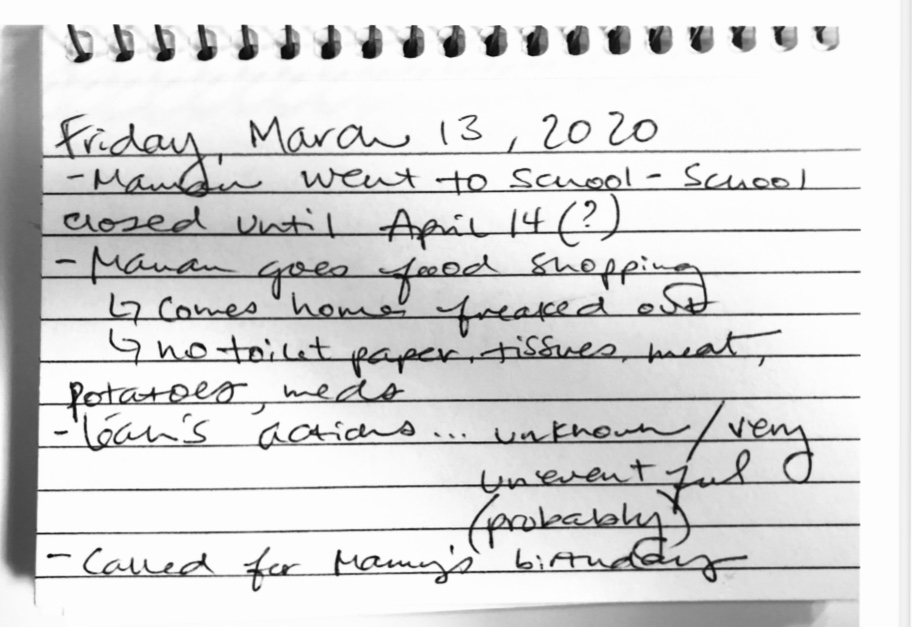 Friday, March 13, 2020
- went to school - school
closed until April 14 (?)
- Maman goes food shopping
↳ comes home freaked out
↳ no toilet paper, tissues, meat,
potatoes, meds
- actions... unknown / very
uneventful
(probably)
- Called for birthday